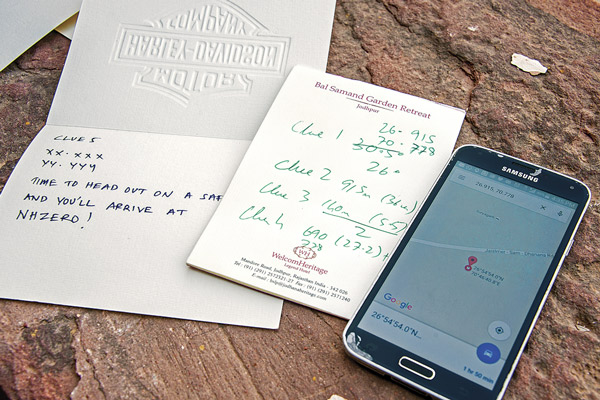 MOTOR
HARLEY-DAVIDSON
COMPANY
CLUE 5
XX. XXX
YY. YYY
TIME TO HEAD OUT ON A SAF
AND YOU'LL ARRIVE AT
NHZERO!
Bal Samand Garden Retreat
Jodhpur
26. 915
Clue 1 70. 778
30.5
26.
Clue 2 915m
Clue 3 160m (5.5)
2
Clue 4 690 (27.2) +
778
WH
WelcomHeritage
Legend Hotel
Mandore Road, Jodhpur, Rajasthan, India - 342 026
Tel : (91) (291) 2572321-27 Fax : (91) (291) 2571240
E-mail : help@jodhanaheritage.com
SAMSUNG
26.915, 70.778
26°54'54.0"N
70°46'40.8"E
Google
26°54'54.0"N...
1 hr 50 min